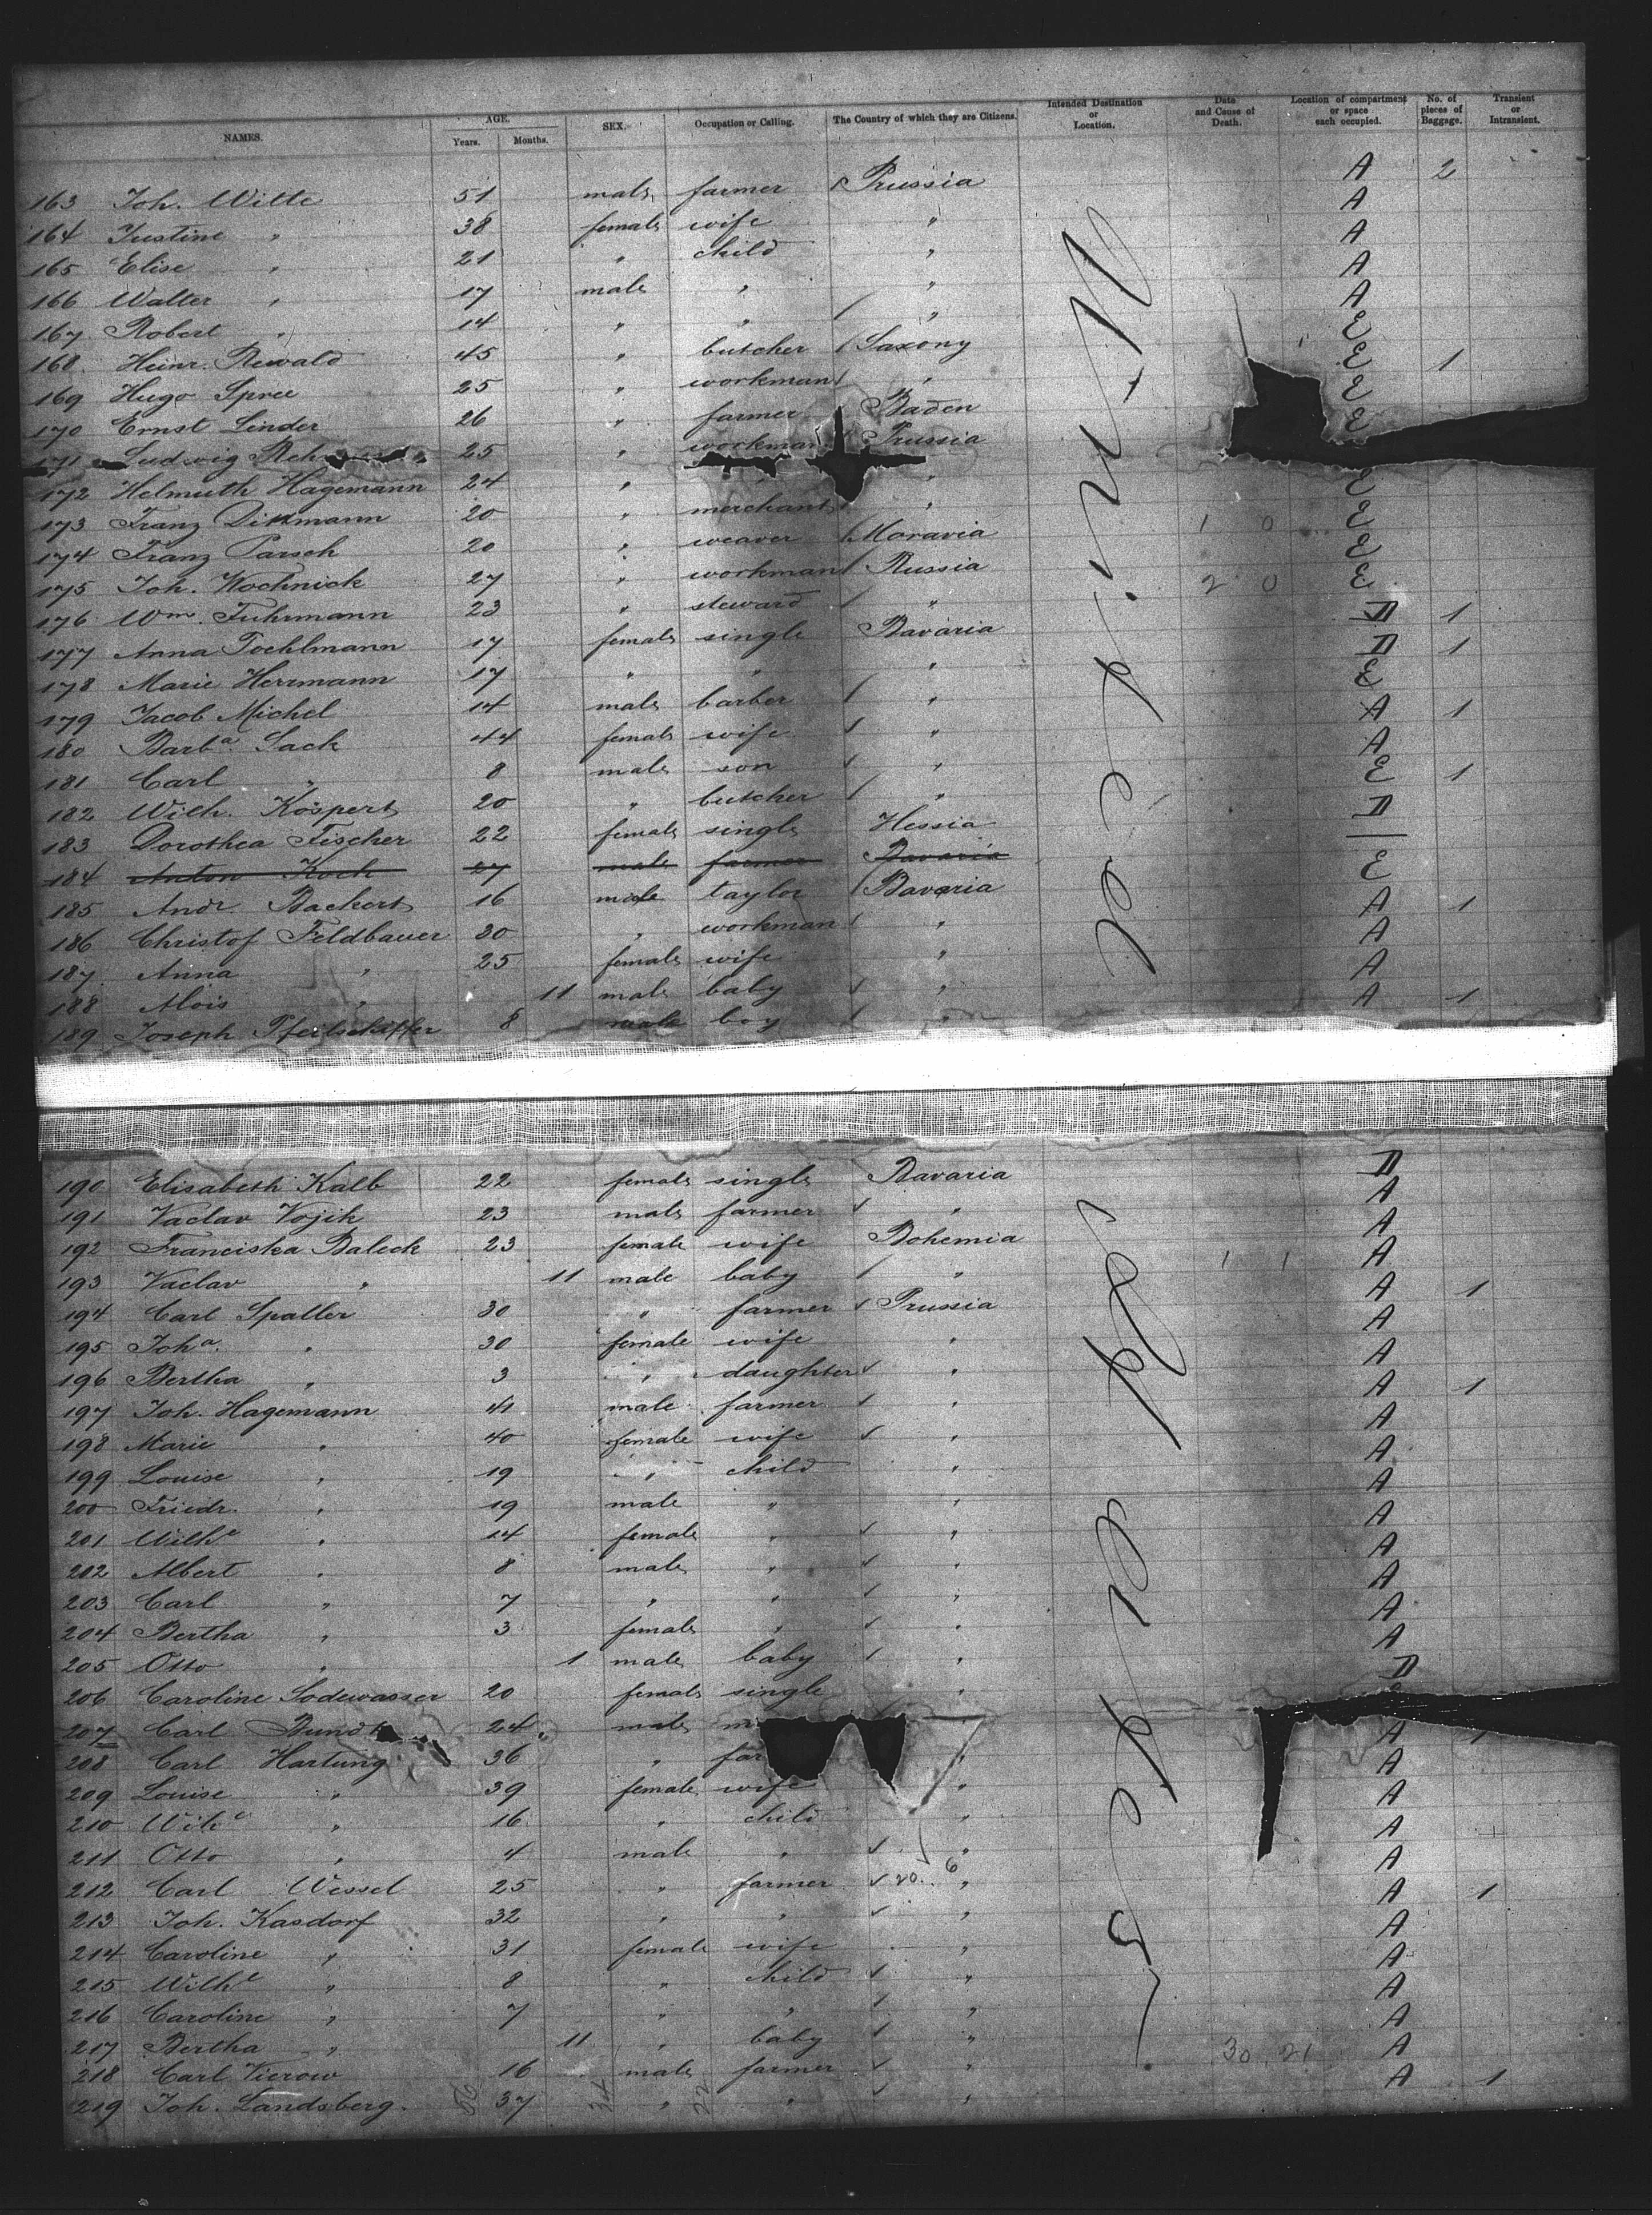 NAMES. AGE. Years. Months. SEX. Occupation or Calling. The Country of which they are Citizens. Intended Destination or Location. Date and Cause of Death. Location of compartment or space each occupied. No. of pieces of Baggage. Transient or Intransient.
163 Joh. Witte 51 male farmer Prussia A 2
164 Justine " 38 female wife " A
165 Elise " 21 " child " A
166 Walter " 17 male " " A
167 Robert " 14 " " " A
168 Heinr. Rewald 45 " butcher Saxony E
169 Hugo Spree 25 " workman " E 1
170 Ernst Linder 26 " farmer Baden E
171 Ludwig Reh 25 " workman Prussia E
172 Helmuth Hagemann 24 " " E
173 Franz Dikmann 20 " merchant " E
174 Franz Parsch 20 " weaver Moravia E
175 Joh. Wochnick 27 " workman Russia E
176 Wm. Fuhrmann 23 " steward " E
177 Anna Tochlmann 17 female single Bavaria D 1
178 Marie Herrmann 17 " " " D 1
179 Jacob Michel 14 male barber " E
180 Barba. Sack 44 female wife " A 1
181 Carl " 8 male son " A
182 Wilh. Kospert 20 " butcher " E 1
183 Dorothea Fischer 22 female single Hessia D
184 Anton Koch 27 male farmer Bavaria —
185 Andr. Backert 16 male taylor Bavaria E
186 Christof Feldbauer 30 " workman " A 1
187 Anna " 25 female wife " A
188 Alois " 11 male baby " A
189 Joseph Pfertschaffer 8 male boy A 1
190 Elisabeth Kalb 22 female single Bavaria D
191 Vaclav Vojik 23 male farmer " A
192 Franciska Baleck 23 female wife Bohemia A
193 Vaclav " 11 male baby " A
194 Carl Spaller 30 " farmer Prussia A 1
195 Joha. " 30 female wife " A
196 Bertha " 3 " daughter " A
197 Joh. Hagemann 41 male farmer " A 1
198 Marie " 40 female wife " A
199 Louise " 19 " child " A
200 Friedr. " 19 male " " A
201 Wilhe " 14 female " " A
202 Albert " 8 male " " A
203 Carl " 7 " " " A
204 Bertha " 3 female " " A
205 Otto " 1 male baby " A
206 Caroline Sodewasser 20 female single " D
207 Carl Bundt 24 male m
208 Carl Hartung 36 " far " A 1
209 Louise " 39 female wife " A
210 Wilhe " 16 " child " A
211 Otto " 4 male " " A
212 Carl Wessel 25 " farmer 20. 6 " A
213 Joh. Kasdorf 32 " " " A 1
214 Caroline " 31 female wife " A
215 Wilhe " 8 " child " A
216 Caroline " 7 " " " A
217 Bertha " 11 " baby " A
218 Carl Vierow 16 male farmer " 30 21 A
219 Joh. Landsberg. 37 " " " A 1